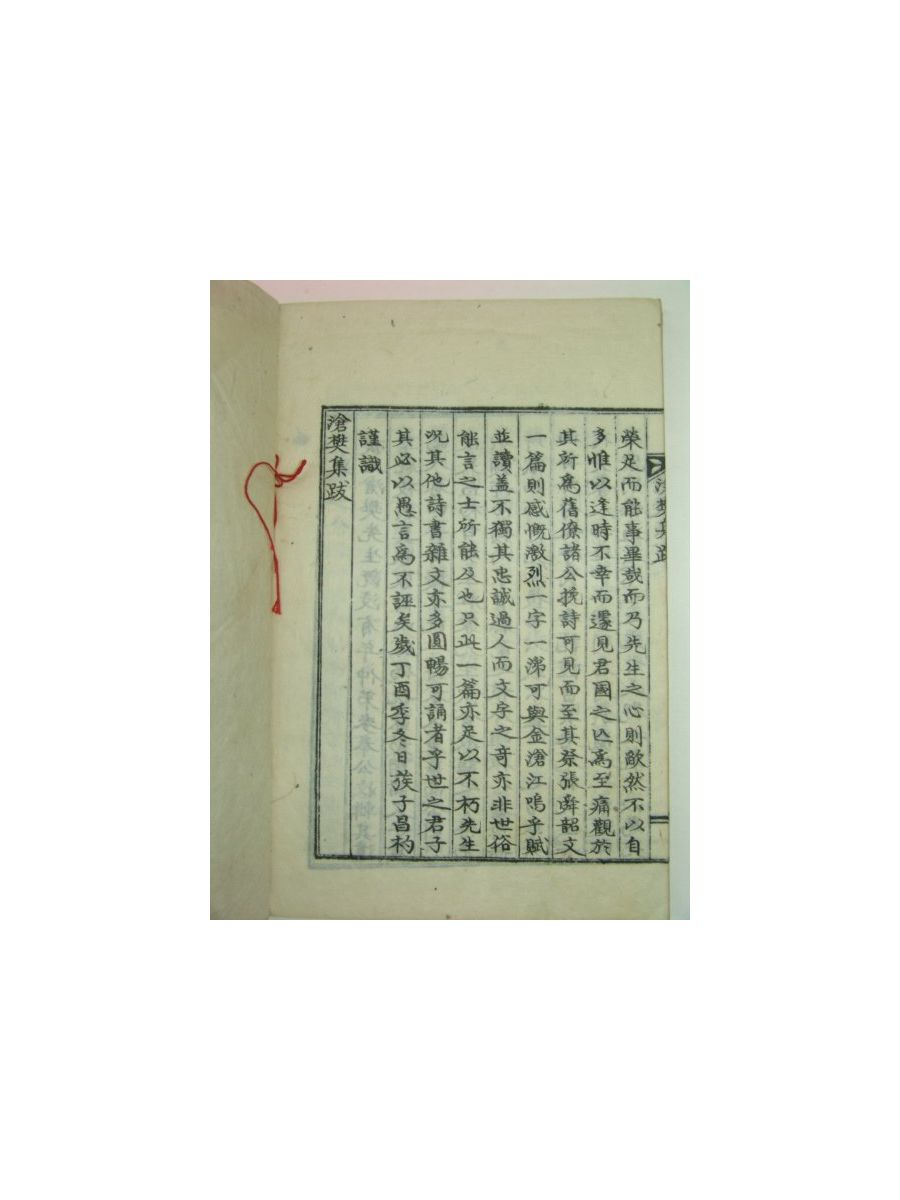 滄樊集跋
榮足而能事畢哉而乃先生之心則欿然不以自
多惟以逢時不幸而還見君國之亾爲至痛觀於
其所爲舊僚諸公挽詩可見而至其祭張舜韶文
一篇則感慨激烈一字一涕可與金滄江嗚乎賦
並讀盖不獨其忠誠過人而文字之奇亦非世俗
能言之士所能及也只此一篇亦足以不朽先生
况其他詩書雜文亦多圓暢可誦者乎世之君子
其必以愚言爲不誣矣歲丁酉季冬日族子昌杓
謹識
滄樊集跋